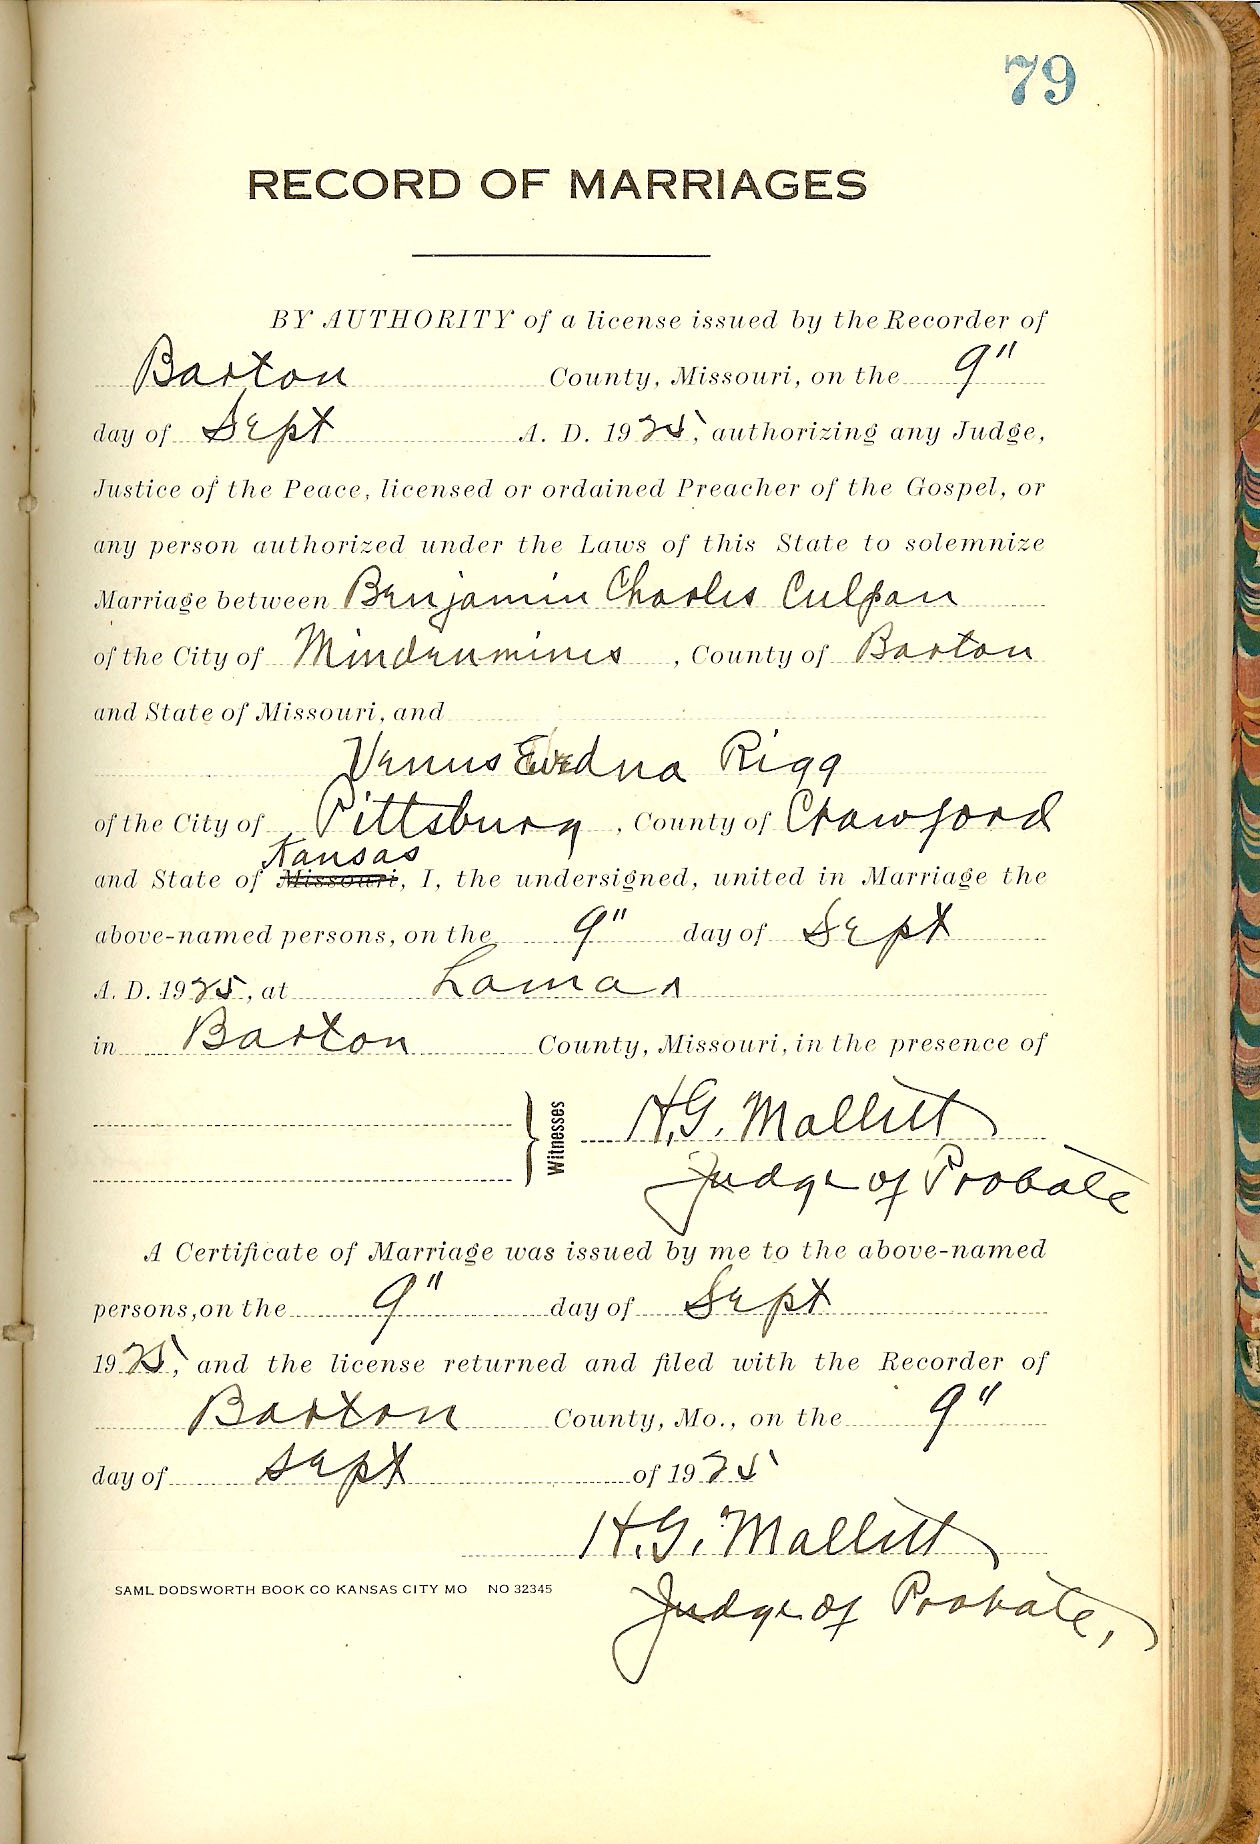 79
RECORD OF MARRIAGES
BY AUTHORITY of a license issued by the Recorder of
Barton County, Missouri, on the 9"
day of Sept A. D. 1925, authorizing any Judge,
Justice of the Peace, licensed or ordained Preacher of the Gospel, or
any person authorized under the Laws of this State to solemnize
Marriage between Benjamin Charles Culpan
of the City of Mindenmines, County of Barton
and State of Missouri, and
Venus Edna Rigg
of the City of Pittsburg, County of Crawford
Kansas
and State of Missouri, I, the undersigned, united in Marriage the
above-named persons, on the 9" day of Sept
A. D. 1925, at Lamar
in Barton County, Missouri, in the presence of
Witnesses H.G. Mallitt
Judge of Probate
A Certificate of Marriage was issued by me to the above-named
persons, on the 9" day of Sept
1925, and the license returned and filed with the Recorder of
Barton County, Mo., on the 9"
day of Sept of 1925
H.G. Mallitt
SAML DODSWORTH BOOK CO KANSAS CITY MO NO 32345
Judge of Probate,